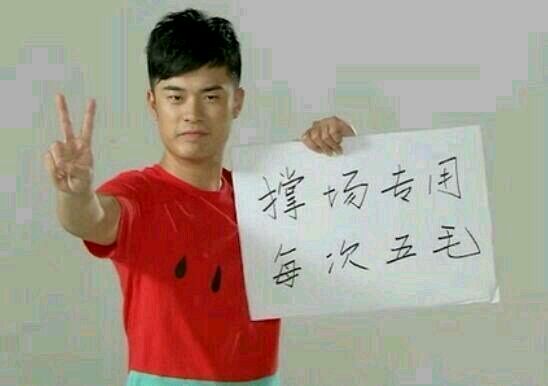 撑场专用
每次五毛